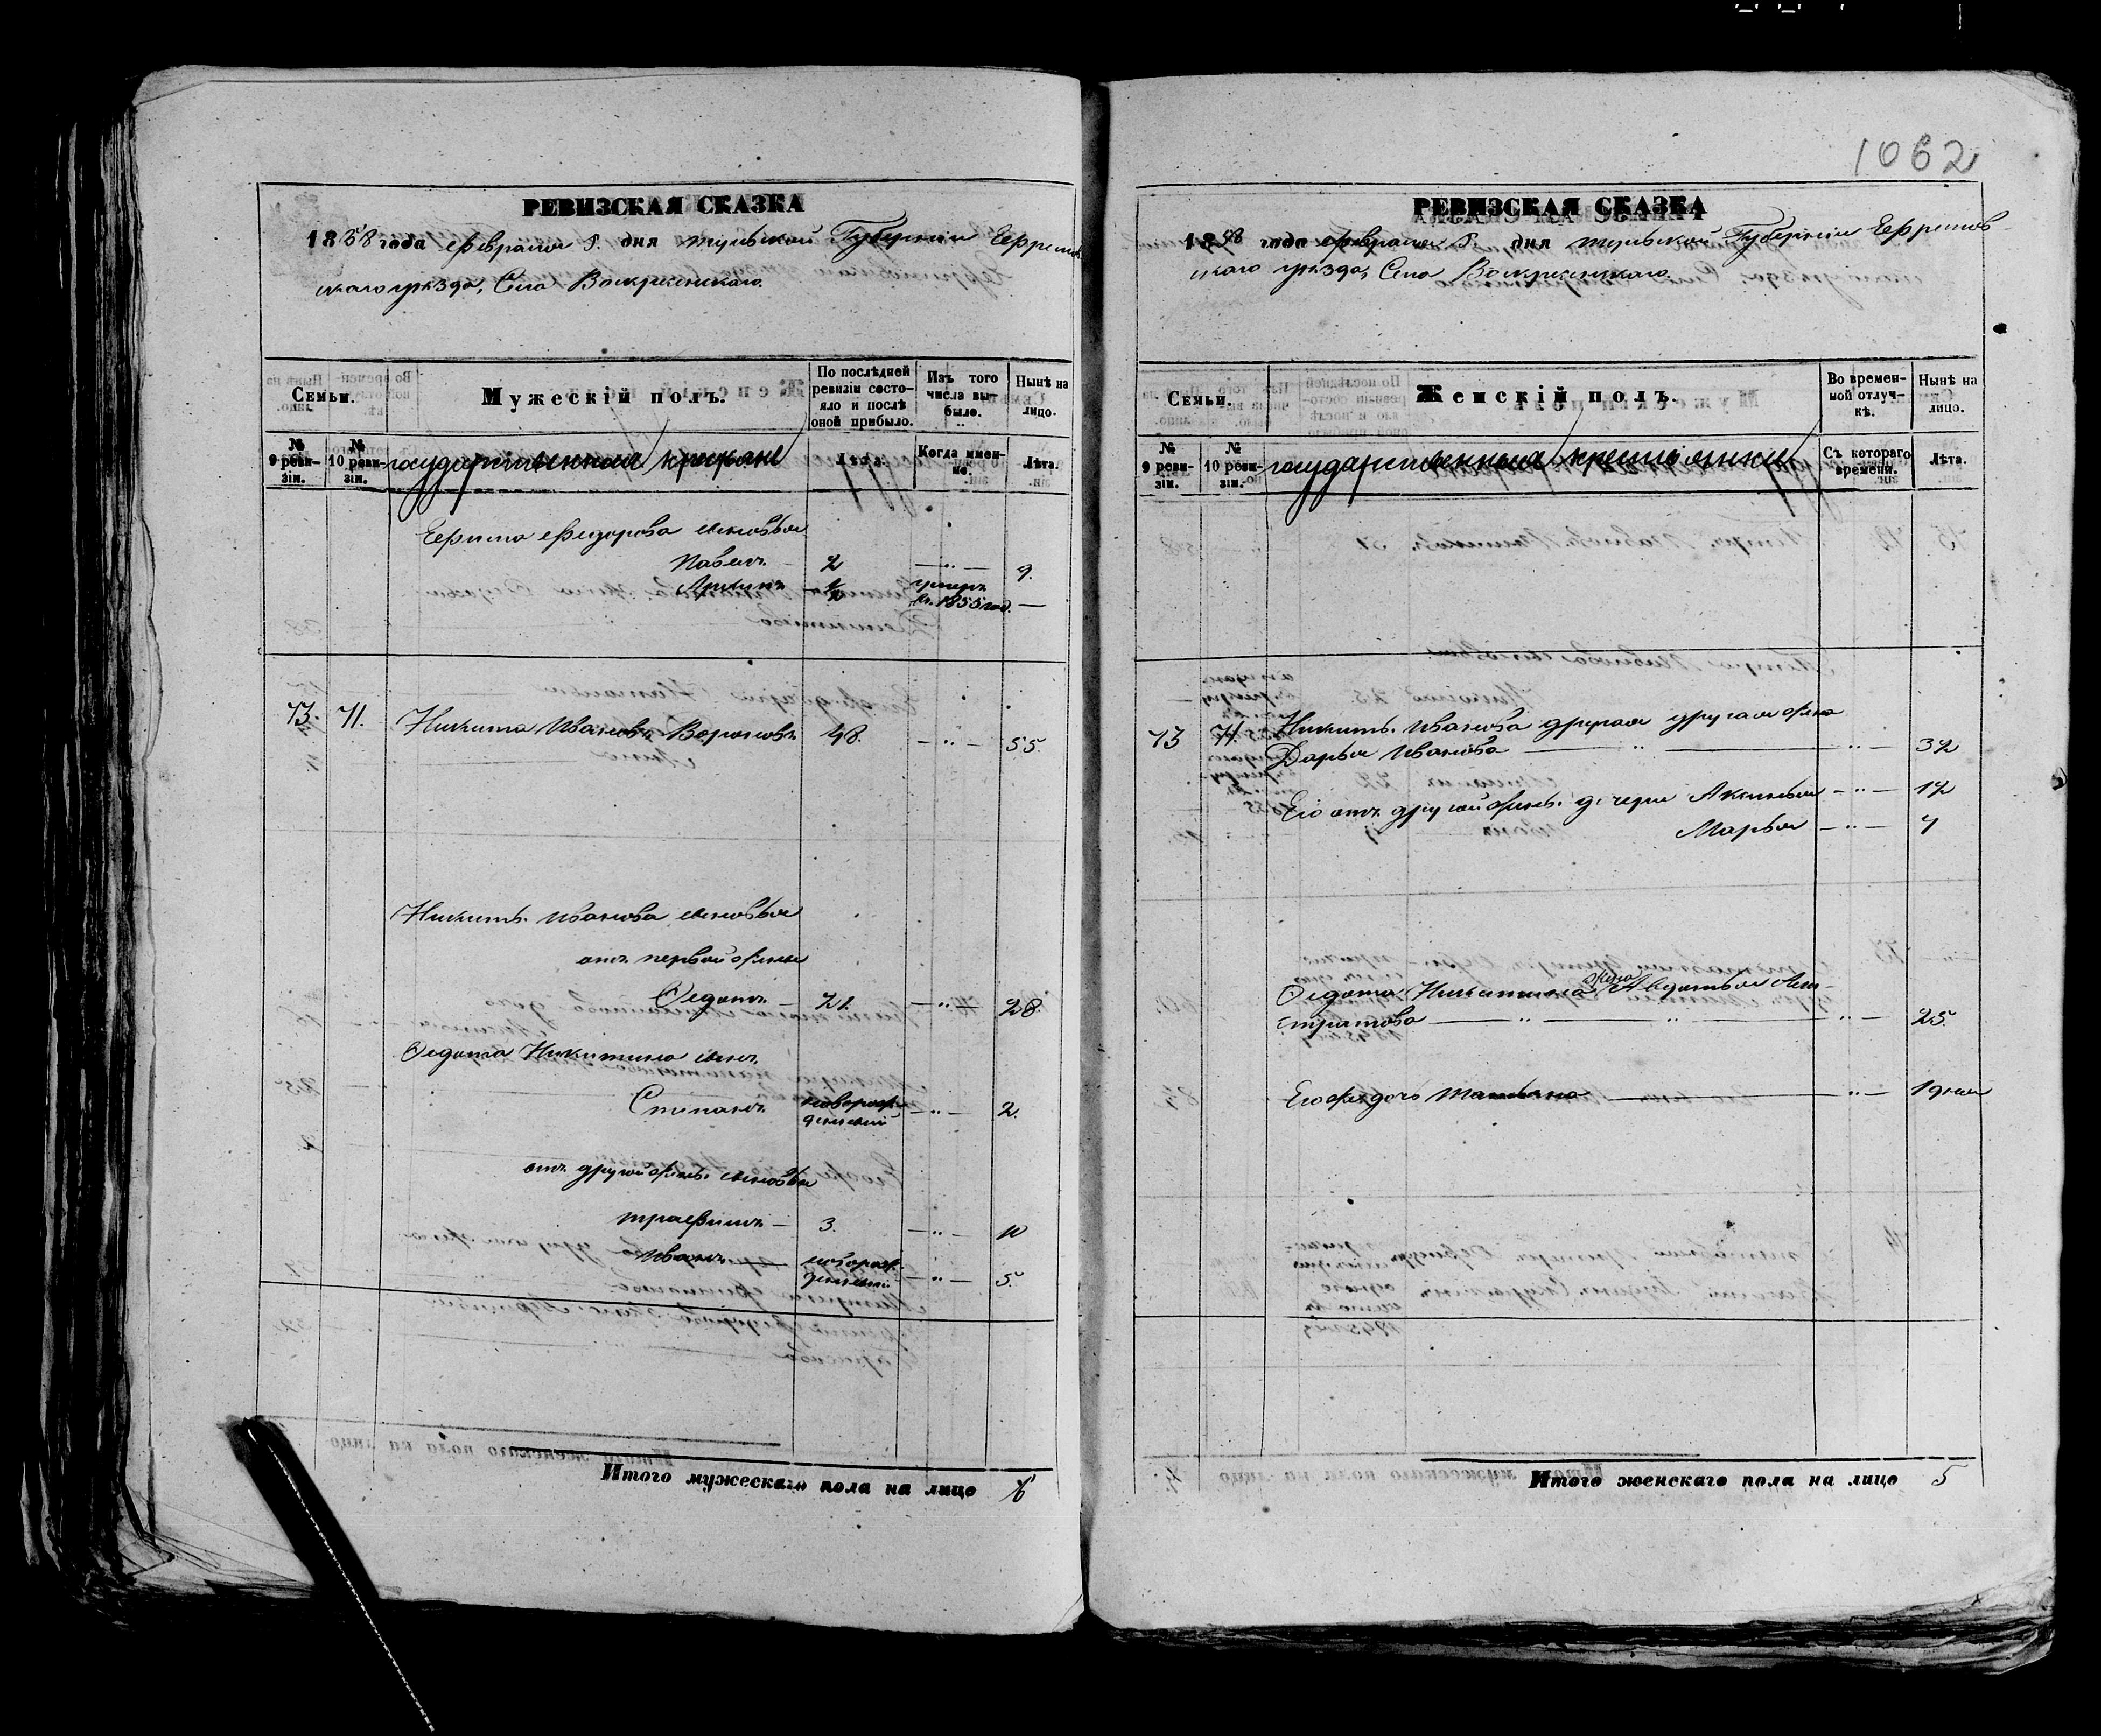 1062
РЕВИЗСКАЯ СКАЗКА
1858 года февраля 8. дня Тульской Губернии Ефремов
скаго уѣзда, Села Воскресенскаго.
Семьи.
Мужескій полъ.
По послѣдней ревизіи состояло и послѣ оной прибыло.
Изъ того числа выбыло.
Нынѣ на лицо.
№ 9 ревизіи.
№ 10 ревизіи.
государственные крестьяне
Лѣта.
Когда именно.
Лѣта.
Ефима Федорова сыновья
Павелъ — 2 — " — 9.
умеръ
въ 1855 год. —
73. 71. Никита Ивановъ 48. — " — 55.
Никиты Иванова сыновья
отъ первой жены
Федотъ — 21. — " — 28.
Федота Никитина сынъ
Степанъ новорожденный — " — 2.
отъ другой жены сыновья
Трафимъ — 3. — " — 10
Иванъ новорожденный — " — 5.
Итого мужескаго пола на лицо 6
РЕВИЗСКАЯ СКАЗКА
1858 года февраля 8. дня Тульской Губернии Ефремов
скаго уѣзда, Села Воскресенскаго.
Семьи.
Женскій полъ.
Во временной отлучкѣ.
Нынѣ на лицо.
№ 9 ревизіи.
№ 10 ревизіи.
государственныя крестьянки
Съ котораго времени.
Лѣта.
73 71. Никиты Иванова другая жена
Дарья Иванова — " — " — 32
Его отъ другой жены дочери Аксинья — " — 12
Марья — " — 7
Федота Никитина жена Авдотья Ели-
стратова — " — " — " — 25.
Его же дочь Татьяна — " —
Итого женскаго пола на лицо 5